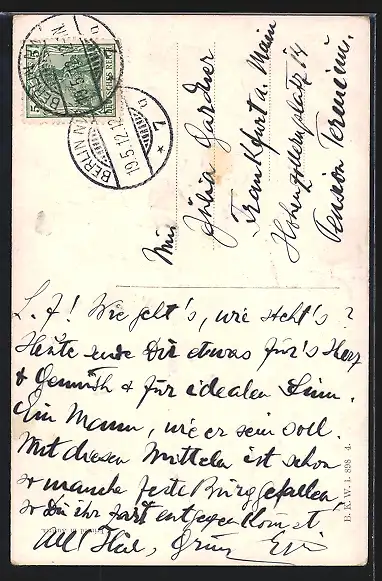 BERLIN N.W.
19.5.12. 12
* 7 a
DEUTSCHES REICH
5
Miss
Julia Gardner
Frankfurt a. Main
Hohenzollernplatz 14
Pension
L. J! Wie geht's, wie steht's?
Heute sende Dir etwas für's Herz
& Gemüth & für idealen Sinn.
Ein Mann, wie er sein soll.
Mit diesen Mitteln ist schon
so manche feste Burg gefallen,
so Du ihr zart entgegen kommst
All Heil, Gruss
B. K. W. I. 898 - 4.